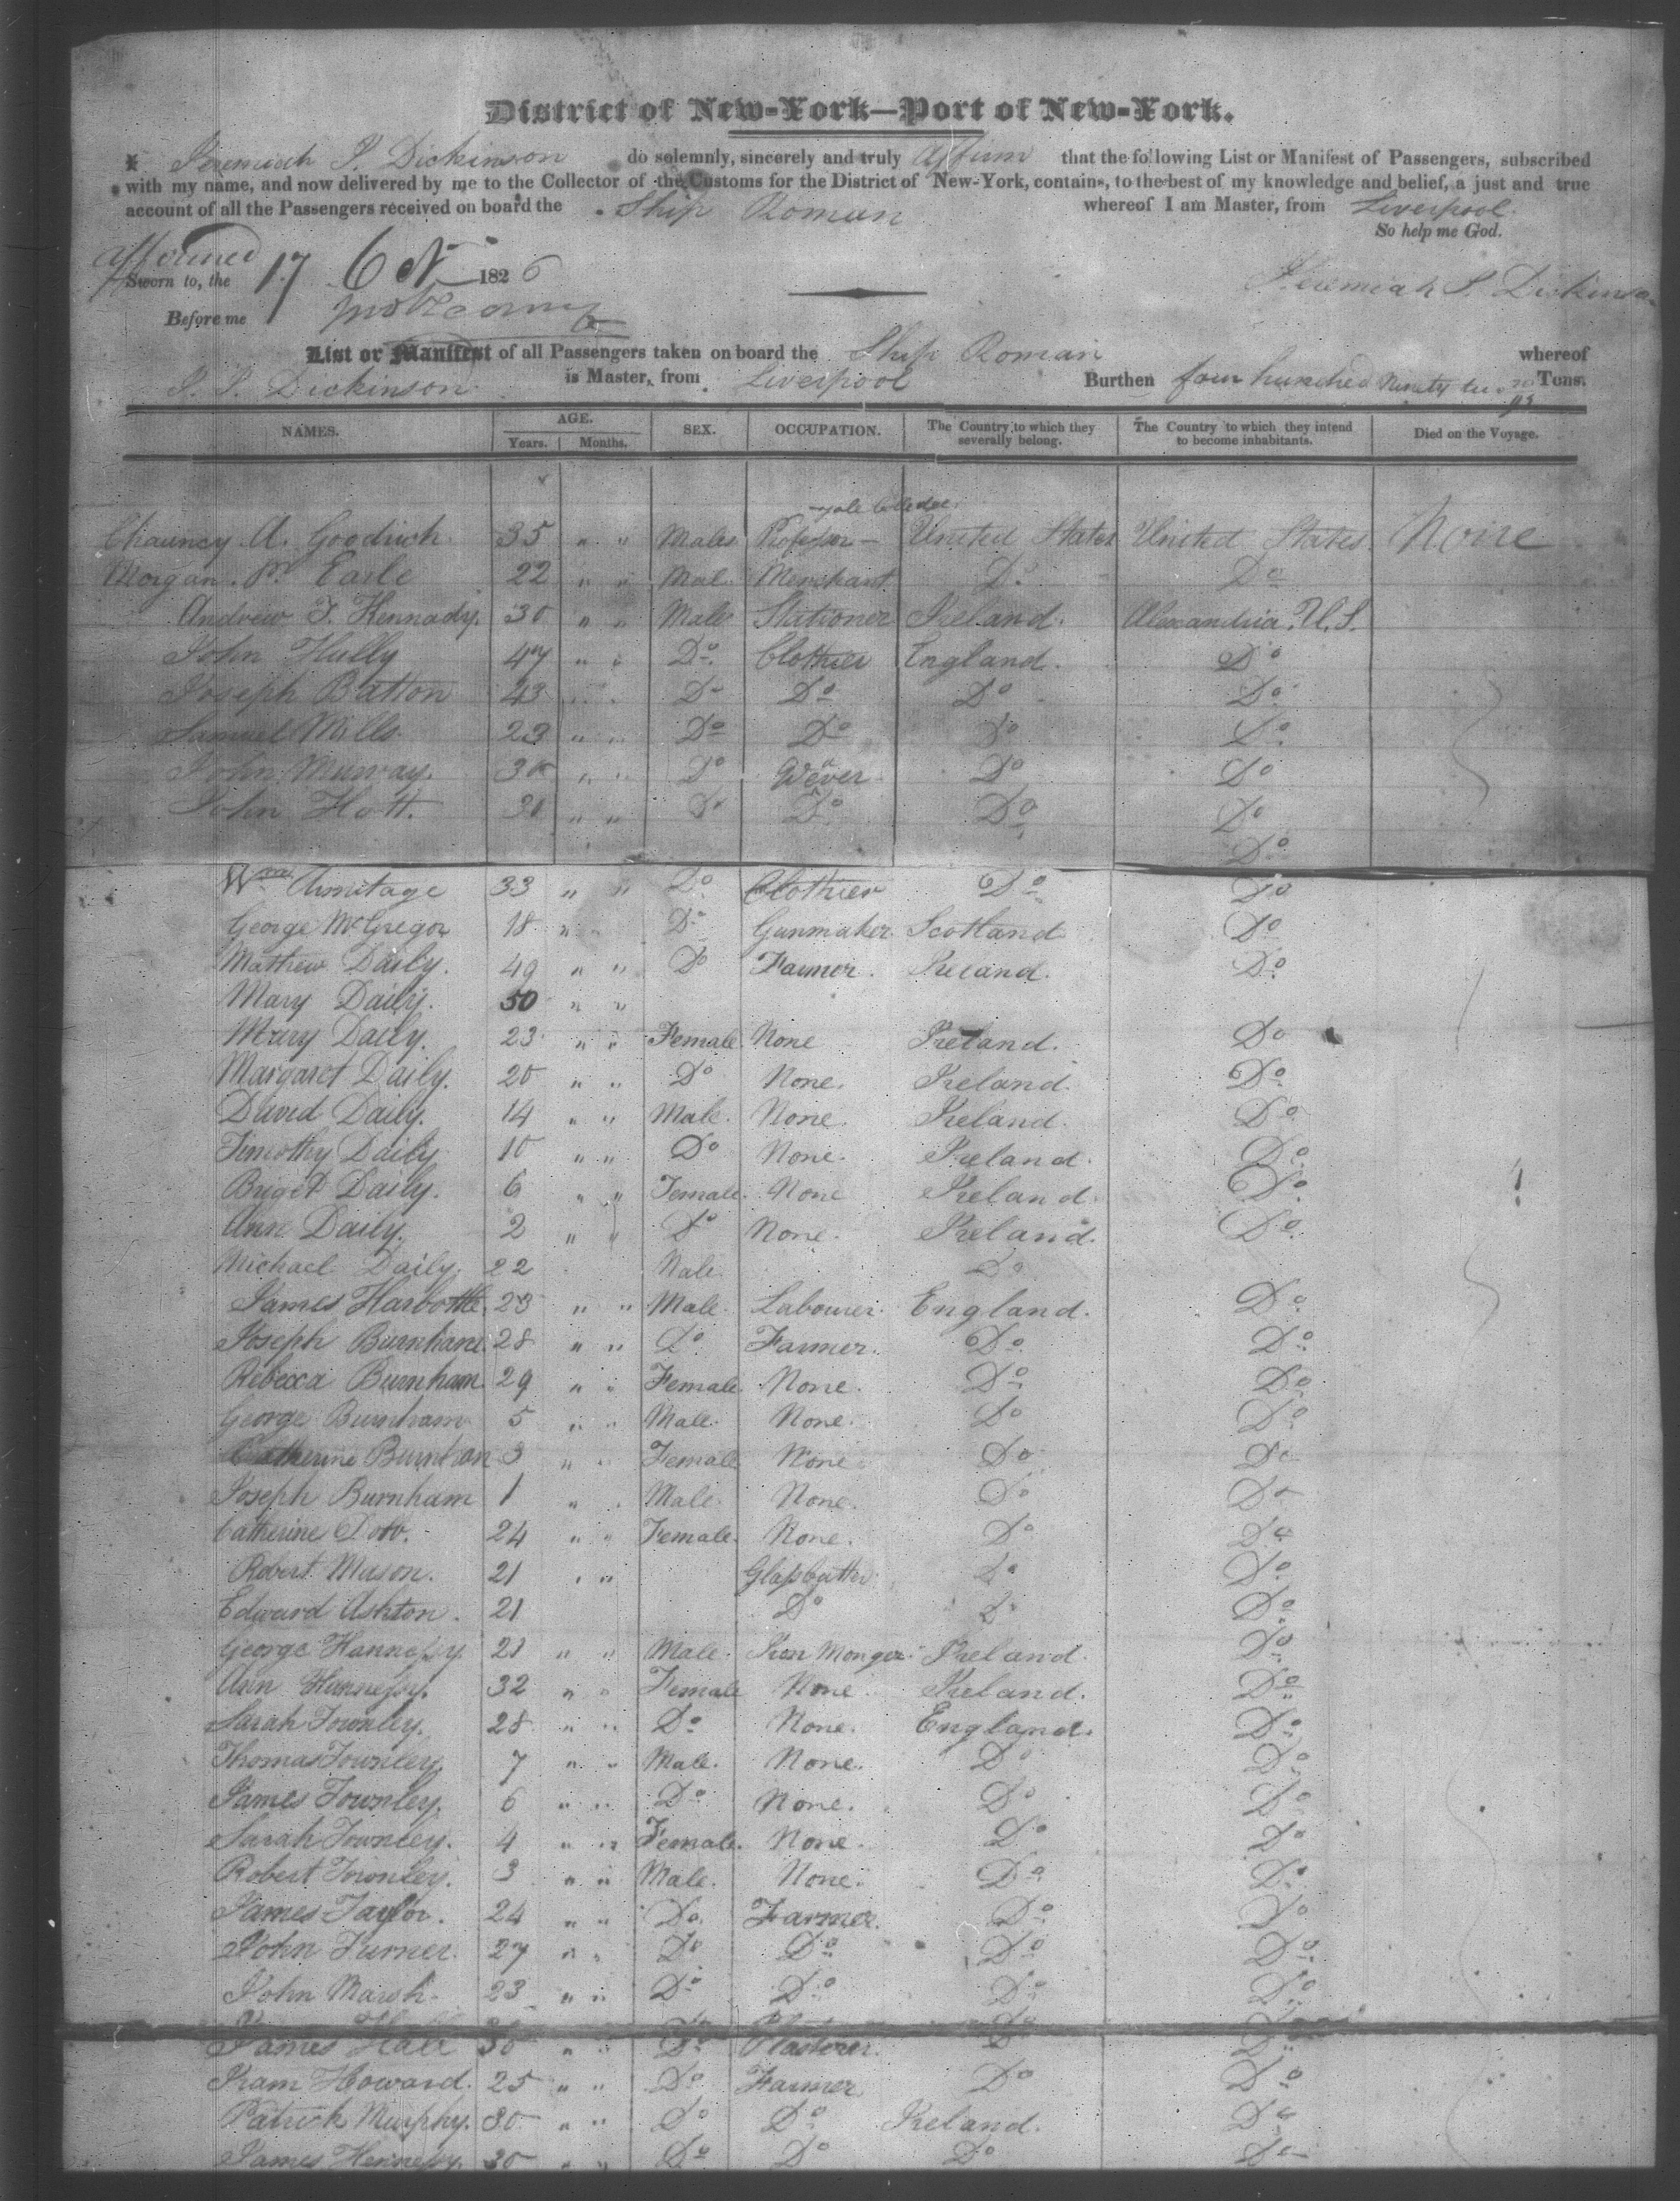 District of New-York—Port of New-York.
I Jeremiah S. Dickinson do solemnly, sincerely and truly affirm that the following List or Manifest of Passengers, subscribed
with my name, and now delivered by me to the Collector of the Customs for the District of New-York, contains, to the best of my knowledge and belief, a just and true
account of all the Passengers received on board the Ship Roman whereof I am Master, from Liverpool.
So help me God.
Affirmed
Sworn to, the 17 Oct 1826
Jeremiah S. Dickinson
Before me
List or Manifest of all Passengers taken on board the Ship Roman whereof
J. S. Dickinson is Master, from Liverpool Burthen four hundred Ninety two Tons.
NAMES. AGE. SEX. OCCUPATION. The Country to which they severally belong. The Country to which they intend to become inhabitants. Died on the Voyage.
Years. Months.
Yale College
Chauncy A. Goodrich 35 " " Males Professor — United States United States None
Morgan P. Earle 22 " " Mal. Merchant Do Do
Andrew J. Kennady. 30 " " Male Stationer Ireland. Alexandria. U.S.
John Hully 47 " " Do Clothier England. Do
Joseph Batton 43 " " Do Do Do Do
Samuel Mills 23 " " Do Do Do Do
John Murray. 30 " " Do Weaver Do Do
John Hott. " " Do Do Do Do
Do
Wm Armitage 33 " " Do Clothier Do Do
George McGregor 18 " " Do Gunmaker Scotland Do
Mathew Daily. 49 " " Do Farmer. Ireland. Do
Mary Daily. 50 " "
Mary Daily. 23 " " Female None Ireland. Do
Margaret Daily. 20 " " Do None. Ireland. Do
David Daily. 14 " " Male. None. Ireland. Do
Timothy Daily 10 " " Do None. Ireland. Do
Briget Daily. 6 " " Female. None Ireland. Do
Ann Daily. 2 " " Do None. Ireland. Do
Michael Daily. 22 Male Do
James Harbottle. 23 " " Male. Labourer. England. Do
Joseph Burnham 28 " " Do Farmer. Do Do
Rebecca Burnham. 29 " " Female. None. Do Do
George Burnham 5 " " Male. None. Do Do
Catherine Burnham 3 " " Female None Do Do
Joseph Burnham 1 " " Male. None. Do Do
Catherine 24 " " Female. None. Do Do
Robert Mason. 21 " " Glasscutter Do Do
Edward Ashton. 21 Do Do Do
George Hennessy. 21 " " Male. Iron Monger Ireland. Do
Ann Hennessy. 32 " " Female None Ireland. Do
Sarah Townley. 28 " " Do None. England. Do
Thomas Townley. 7 " " Male. None. Do Do
James Townley. 6 " " Do None. Do Do
Sarah Townley. 4 " " Female. None. Do Do
Robert Townley. 3 " " Male. None. Do Do
James Taylor. 24 " " Do. Farmer. Do Do
John Turner. 27 " " Do Do Do Do
John Marsh. 23 " " Do Do Do Do
James Hall 30 " " Do Plasterer. Do Do
Howard. 25 " " Do Farmer Do Do
Patrick Murphy. 30 " " Do Do Ireland. Do
James Hennessy. 30 " " Do Do Do Do